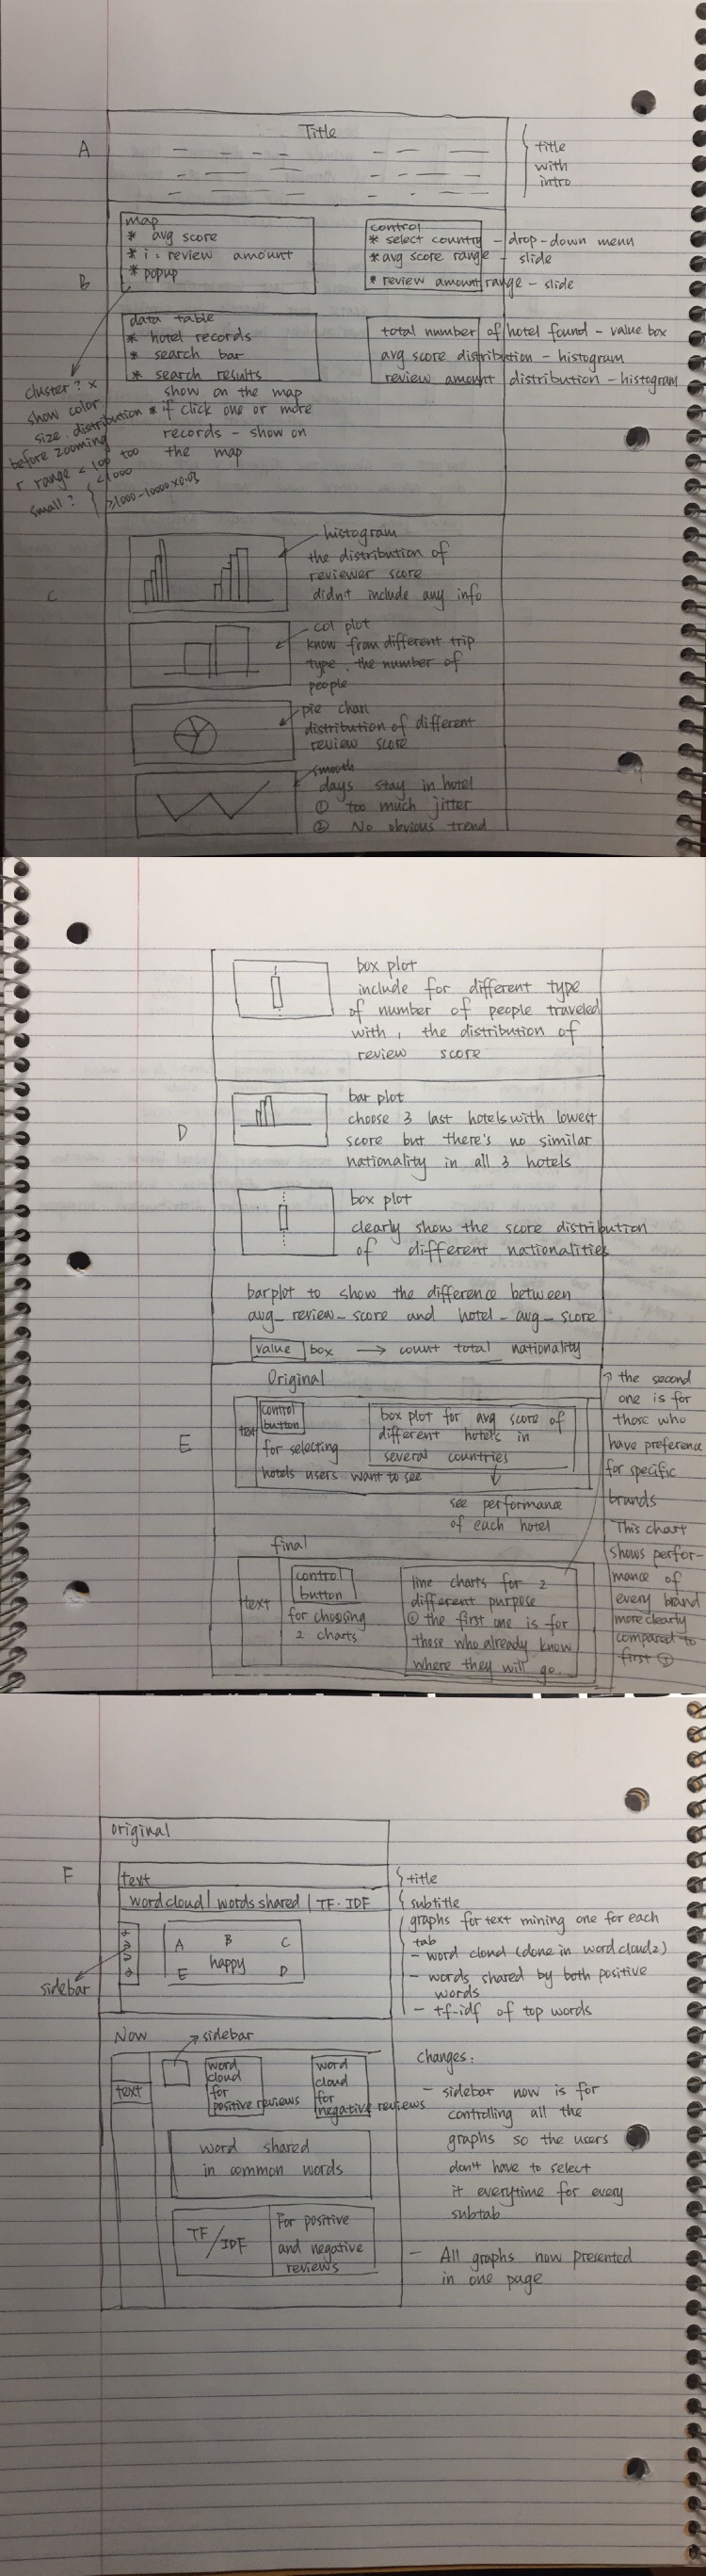 A
Title
title
with
intro
B
map
* avg score
* i : review amount
* popup
control
* select country - drop-down menu
* avg score range - slide
* review amount range - slide
data table
* hotel records
* search bar
* search results
show on the map
* if click one or more
records - show on
the map
total number of hotel found - value box
avg score distribution - histogram
review amount distribution - histogram
cluster? x
show color
size. distribution
before zooming
r range < 100 too
small?
<1000
≥1000-10000 x0.03
C
histogram
the distribution of
reviewer score
didn't include any info
col plot
know from different trip
type. the number of
people
pie chart
distribution of different
review score
smooth
days stay in hotel
① too much jitter
② No obvious trend
box plot
include for different type
of number of people traveled
with, the distribution of
review score
D
bar plot
choose 3 last hotels with lowest
score but there's no similar
nationality in all 3 hotels
box plot
clearly show the score distribution
of different nationalities
barplot to show the difference between
avg_review_score and hotel_avg_score
value box → count total nationality
E
Original
text
control
button
for selecting
hotels users want to see
box plot for avg score of
different hotels in
several countries
see performance
of each hotel
final
text
control
button
for choosing
2 charts
line charts for 2
different purpose
① the first one is for
those who already know
where they will go.
the second
one is for
those who
have preference
for specific
brands
This chart
shows perfor-
mance of
every brand
more clearly
compared to
first ①
F
original
text
word cloud | words shared | TF-IDF
A B C
happy
E D
sidebar
title
subtitle
graphs for text mining one for each
tab
- word cloud (done in wordcloud2)
- words shared by both positive
words
- tf-idf of top words
Now
sidebar
text
word
cloud
for
positive reviews
word
cloud
for
negative reviews
word shared
in common words
TF/IDF
For positive
and negative
reviews
Changes:
- sidebar now is for
controlling all the
graphs so the users
don't have to select
it everytime for every
subtab
- All graphs now presented
in one page